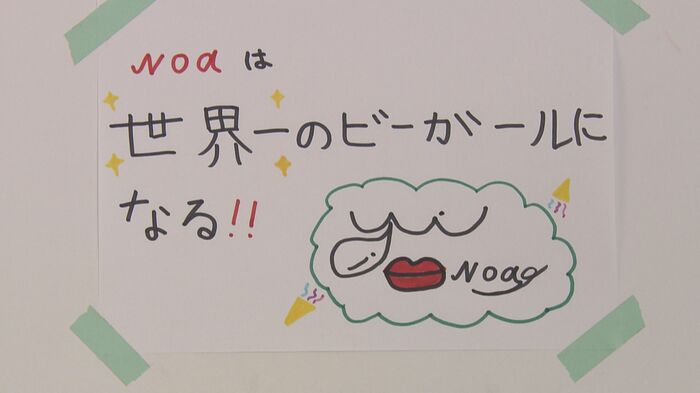 Noaは
世界一のビーがールに
なる!!
Noa